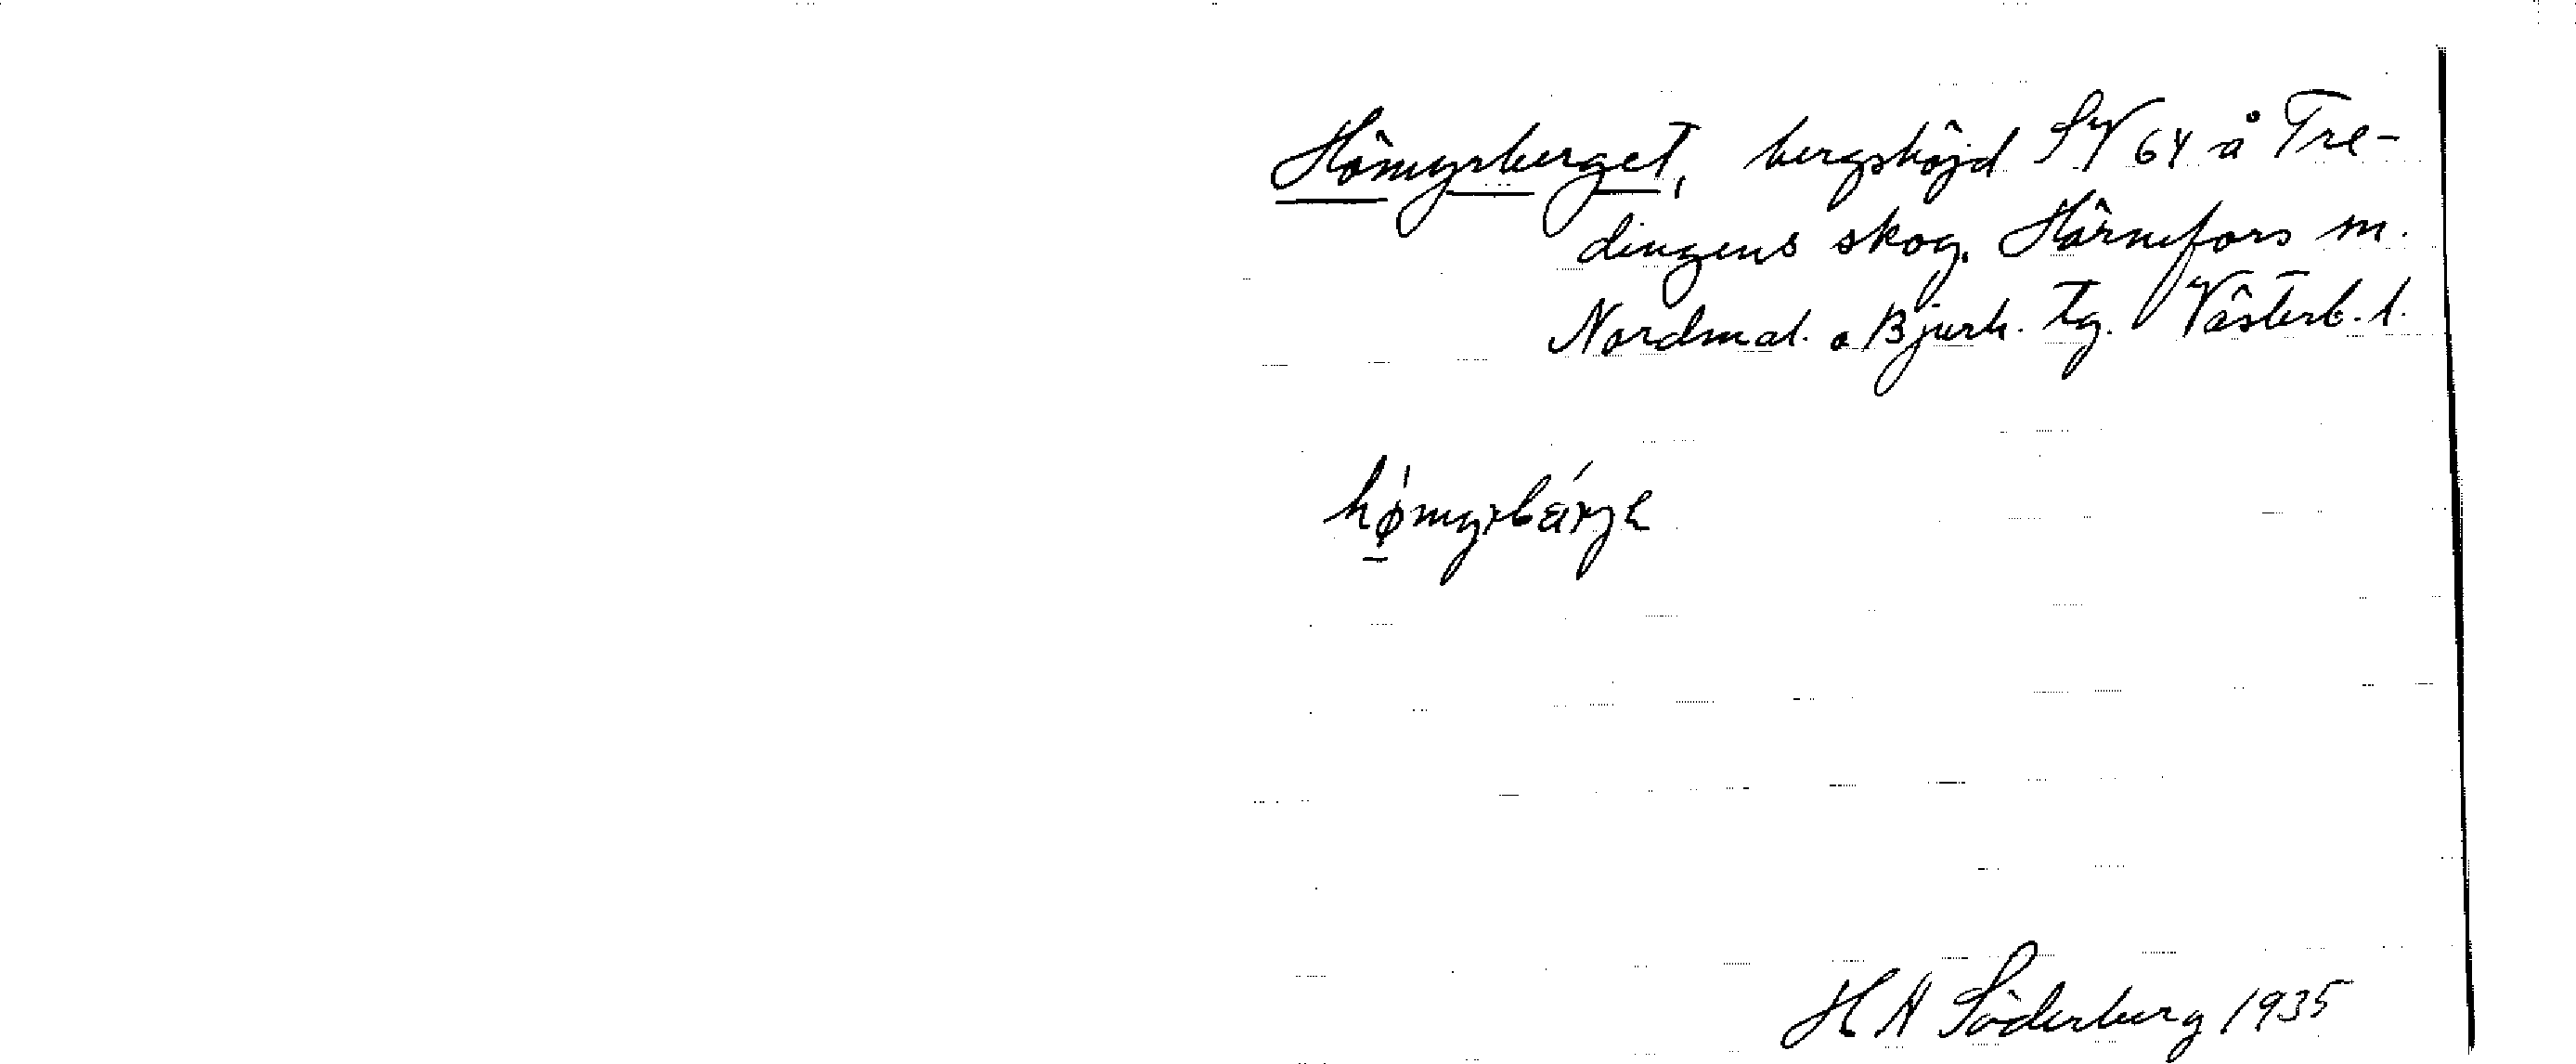 Hömyrberget, bergshöjd SV 64 å Tre-
dingens skog. Hörnefors m.
Nordmal. o Bjurh. tg. Västerb. l.
hø̱myrbärjɛ
H A Söderberg 1935